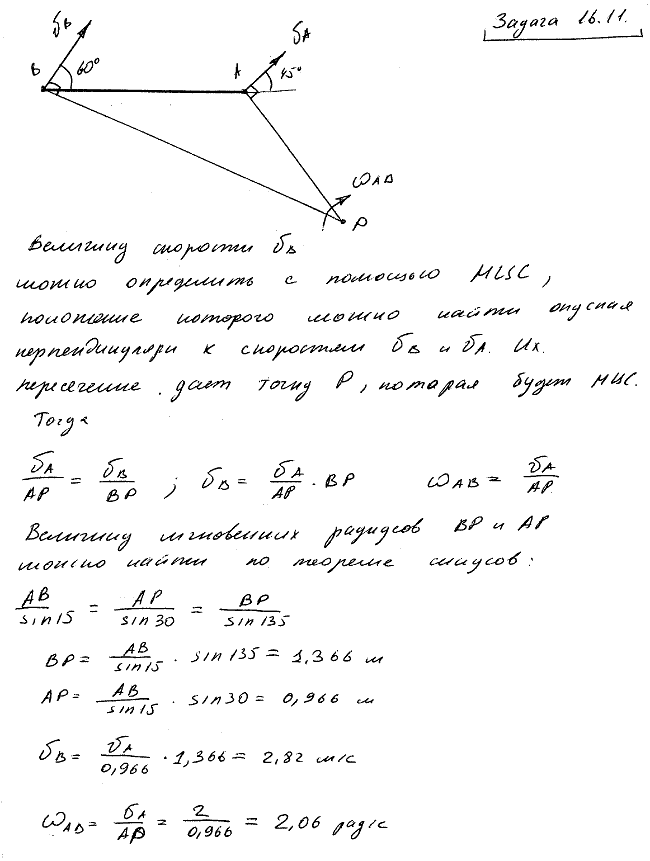 Задача 16.11.
υB
υA
B
60°
A
45°
ωAB
P
Величину скорости υB
можно определить с помощью МЦС,
положение которого можно найти опуская
перпендикуляры к скоростям υB и υA. Их
пересечение дает точку P, которая будет МЦС.
Тогда
υA/AP = υB/BP ; υB = υA/AP · BP ωAB = υA/AP
Величину мгновенних радиусов BP и AP
можно найти по теореме синусов:
AB/sin15 = AP/sin30 = BP/sin135
BP = AB/sin15 · sin135 = 1,366 м
AP = AB/sin15 · sin30 = 0,966 м
υB = υA/0,966 · 1,366 = 2,82 м/с
ωAB = υA/AP = 2/0,966 = 2,06 рад/с